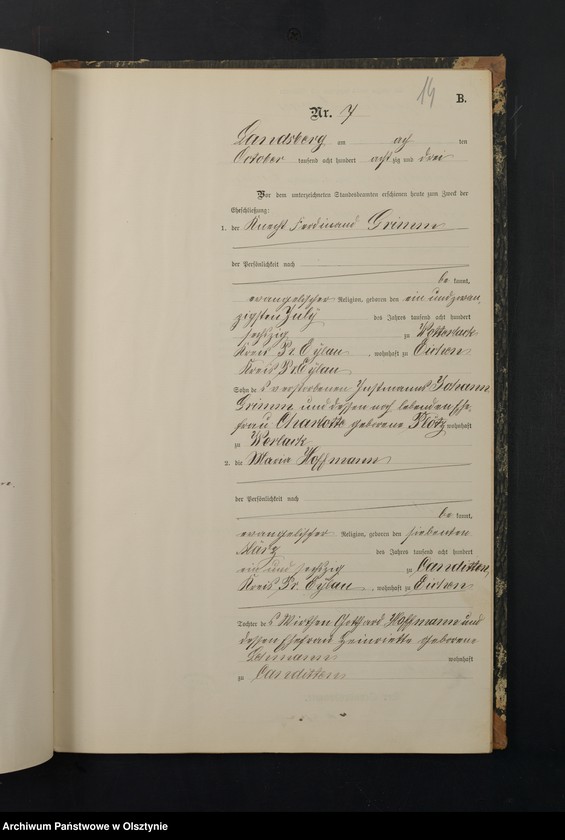 14
B.
Nr. 7
Landsberg am acht den
October tausend acht hundert achtzig und drei
Vor dem unterzeichneten Standesbeamten erschienen heute zum Zweck der
Eheschließung:
1. der Knecht Ferdinand Grimm
der Persönlichkeit nach
bekannt,
evangelischer Religion, geboren den ein und zwan
zigsten July des Jahres tausend acht hundert
sechzig zu
Kreis Pr. Eylau, wohnhaft zu
Kreis Pr. Eylau
Sohn des verstorbenen Instmanns Johann
Grimm und dessen noch lebenden Ehe
frau Charlotte geborene Plötz wohnhaft
zu Worlack
2. die Maria Hoffmann
der Persönlichkeit nach
bekannt,
evangelischer Religion, geboren den siebenten
März des Jahres tausend acht hundert
ein und sechzig zu Canditten,
Kreis Pr. Eylau, wohnhaft zu
Tochter des Wirthen Gotthard Hoffmann und
dessen Ehefrau Heinriette geborene
wohnhaft
zu Canditten
Archiwum Państwowe w Olsztynie